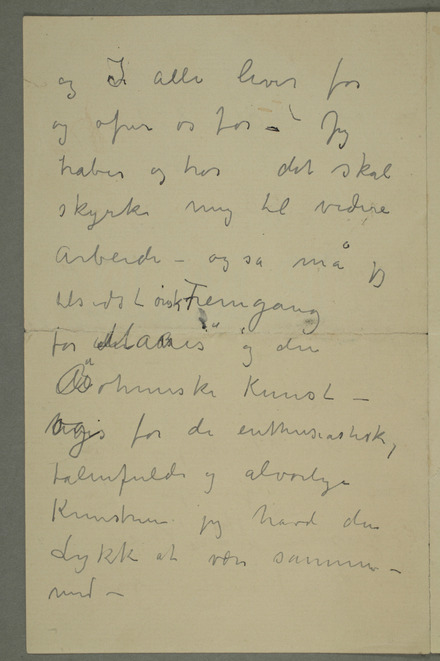 og I alle lever for
og ofrer os for – Jeg
haber og tror det skal
styrke mig til videre
Arbeide – og så må jeg
tilsidst ønske Fremgang
for "Manes" og den
Böhmiske Kunst –
for de enthusiastiske,
talentfulde og alvorlige
Kunstnere jeg havde den
Lykke at være sammen
med –